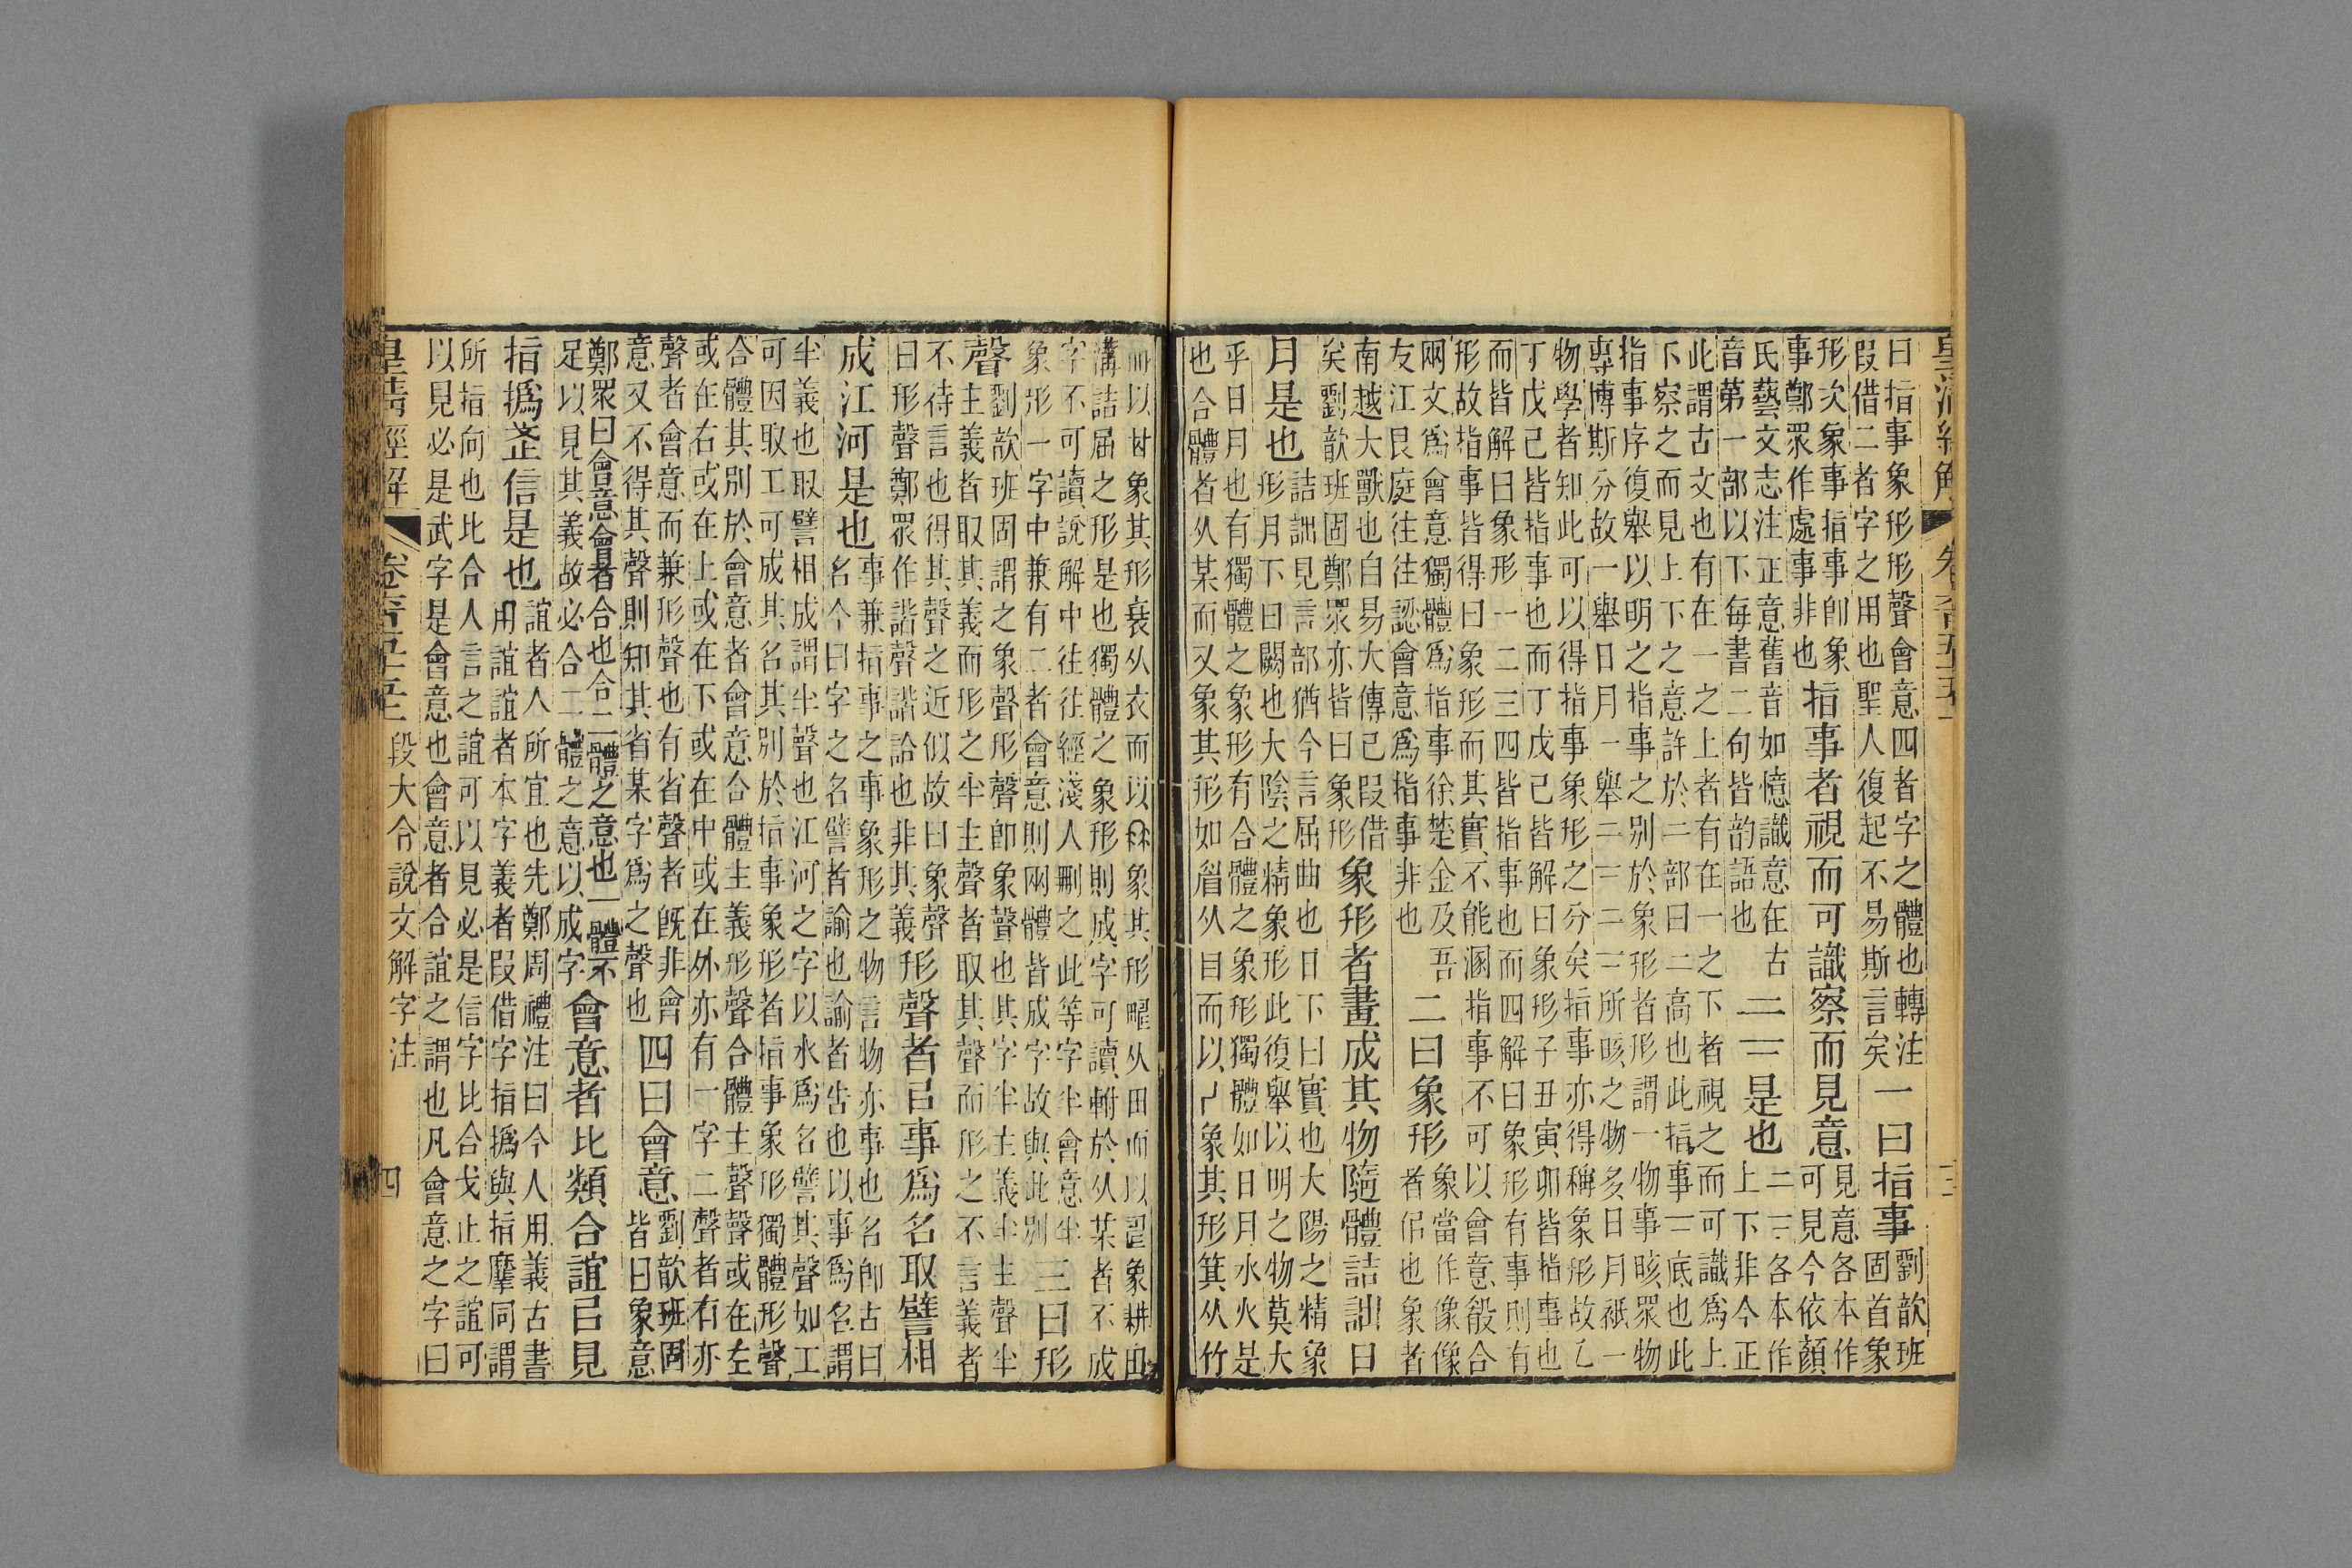 曰指事象形形聲會意四者字之體也轉注
叚借二者字之用也聖人復起不易斯言矣
一曰指事
劉歆班
固首象
形次象事指事卽象
事鄭眾作處事非也
指事者視而可識察而見意
見意各本作
可見今依顏
氏藝文志注正意舊音如憶識意在古
音第一部以下每書二句皆韵語也
二二是也
二二各本作
上下非今正
此謂古文也有在一之上者有在一之下者視之而可識爲上
下察之而見上下之意許於二部曰二高也此指事二底也此
指事序復舉以明之指事之別於象形者形謂一物事晐眾物
專博斯分故一舉日月一舉二二二二所晐之物多日月衹一
物學者知此可以得指事象形之分矣指事亦得稱象形故乙
丁戊己皆指事也而丁戊己皆解曰象形子丑寅卯皆指事也
而皆解曰象形一二三四皆指事也而四解曰象形有事則有
形故指事皆得曰象形而其實不能溷指事不可以會意殽合
兩文爲會意獨體爲指事徐楚金及吾
友江艮庭往往認會意爲指事非也
二曰象形
象當作像像
者佀也象者
南越大獸也自易大傳已叚借
矣劉歆班固鄭眾亦皆曰象形
象形者畫成其物隨體詰詘日
月是也
詰詘見言部猶今言屈曲也日下曰實也大陽之精象
形月下曰闕也大陰之精象形此復舉以明之物莫大
乎日月也有獨體之象形有合體之象形獨體如日月水火是
也合體者从某而又象其形如眉从目而以𠃜象其形箕从竹
而以𠀠象其形衰从衣而以象其形𤲮从田而以象耕田
溝詰屈之形是也獨體之象形則成字可讀軵於从某者不成
字不可讀說解中往往經淺人刪之此等字半會意半
象形一字中兼有二者會意則兩體皆成字故與此別
三曰形
聲
劉歆班固謂之象聲形聲卽象聲也其字半主義半主聲半
主義者取其義而形之半主聲者取其聲而形之不言義者
不待言也得其聲之近似故曰象聲
曰形聲鄭眾作諧聲諧詥也非其義
形聲者㠯事爲名取譬相
成江河是也
事兼指事之事象形之物言物亦事也名卽古曰
名今曰字之名譬者諭也諭者告也以事爲名謂
半義也取譬相成謂半聲也江河之字以水爲名譬其聲如工
可因取工可成其名其別於指事象形者指事象形獨體形聲
合體其別於會意者會意合體主義形聲合體主聲聲或在左
或在右或在上或在下或在中或在外亦有一字二聲者有亦
聲者會意而兼形聲也有省聲者旣非會
意又不得其聲則知其省某字爲之聲也
四曰會意
劉歆班固
皆曰象意
鄭眾曰會意會者合也合二體之意也一體不
足以見其義故必合二體之意以成字
會意者比類合誼㠯見
指撝武信是也
誼者人所宜也先鄭周禮注曰今人用義古書
用誼誼者本字義者叚借字指撝與指摩同謂
所指向也比合人言之誼可以見必是信字比合戈止之誼可
以見必是武字是會意也會意者合誼之謂也凡會意之字曰
皇清經解
段大令說文解字注
四